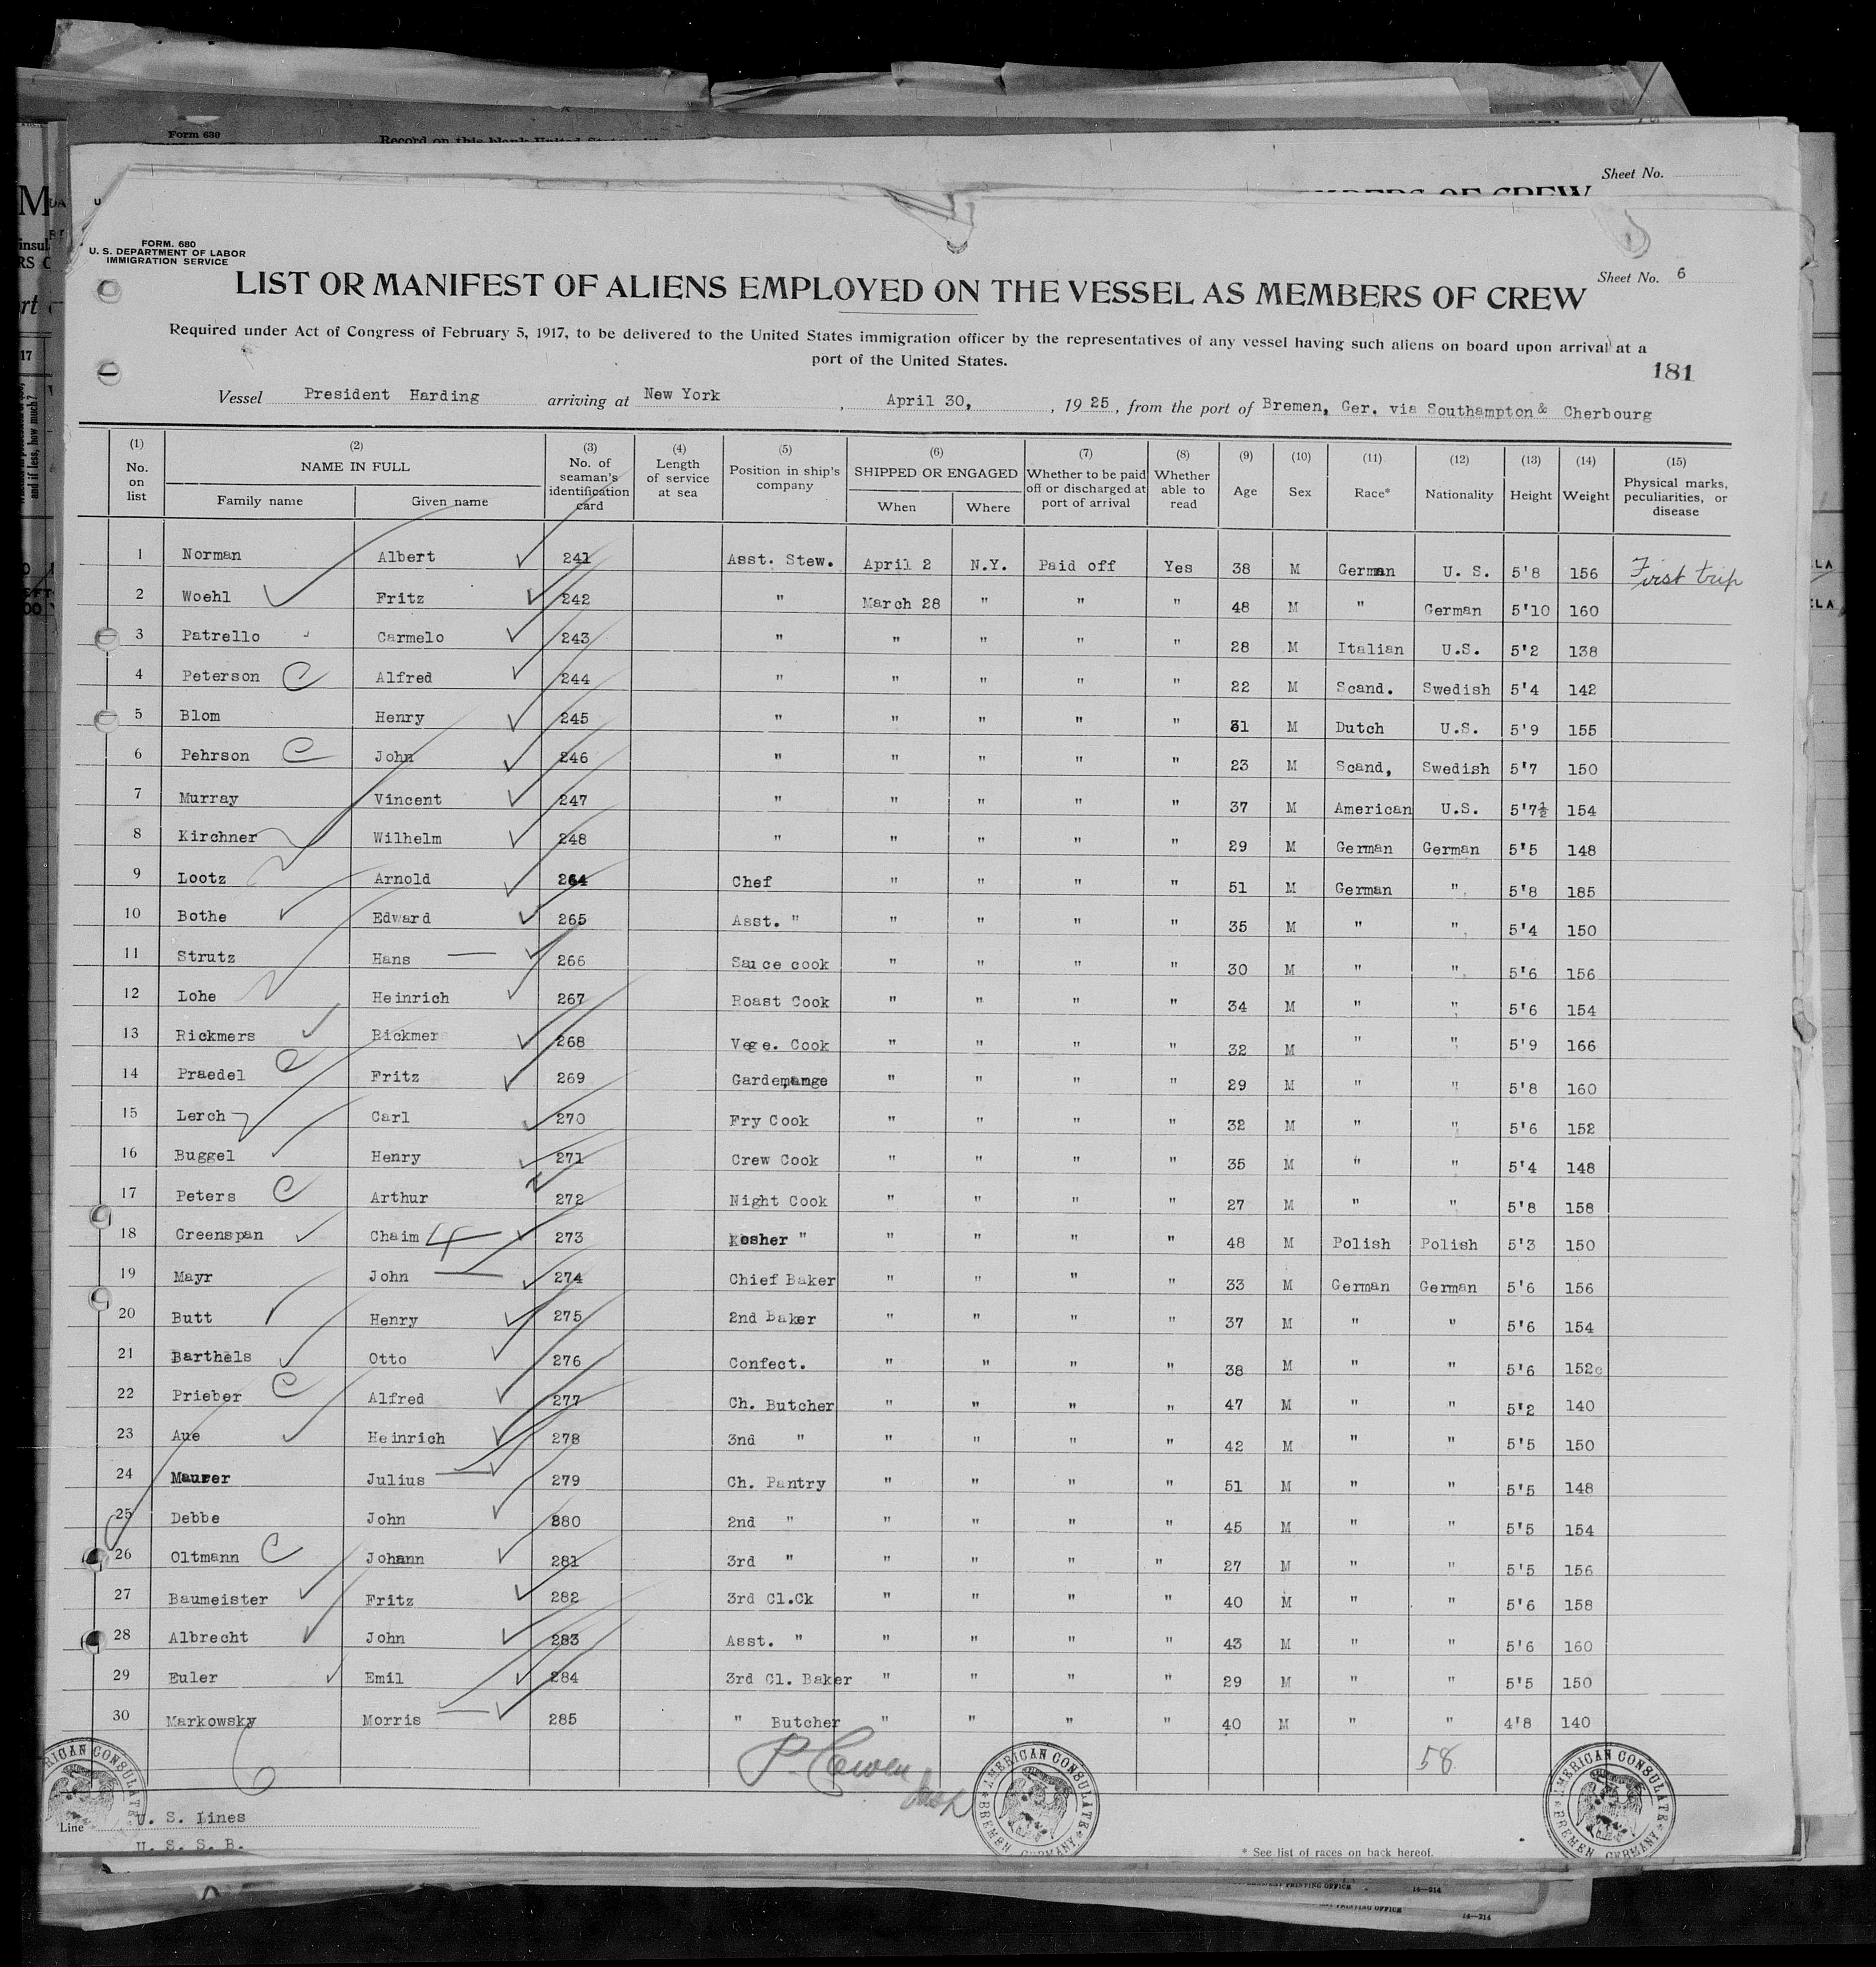 Form 630
Record on this blank United States
Sheet No.
MEMBERS OF CREW
FORM. 680
U. S. DEPARTMENT OF LABOR
IMMIGRATION SERVICE
Sheet No. 6
LIST OR MANIFEST OF ALIENS EMPLOYED ON THE VESSEL AS MEMBERS OF CREW
Required under Act of Congress of February 5, 1917, to be delivered to the United States immigration officer by the representatives of any vessel having such aliens on board upon arrival at a
port of the United States.
181
Vessel President Harding arriving at New York, April 30, , 19 25, from the port of Bremen, Ger. via Southampton & Cherbourg
(1) (2) (3) (4) (5) (6) (7) (8) (9) (10) (11) (12) (13) (14) (15)
No. on list NAME IN FULL Family name Given name No. of seaman's identification card Length of service at sea Position in ship's company SHIPPED OR ENGAGED When Where Whether to be paid off or discharged at port of arrival Whether able to read Age Sex Race* Nationality Height Weight Physical marks, peculiarities, or disease
1 Norman Albert 241 Asst. Stew. April 2 N.Y. Paid off Yes 38 M German U. S. 5'8 156 First trip
2 Woehl Fritz 242 " March 28 " " " 48 M " German 5'10 160
3 Patrello Carmelo 243 " " " " " 28 M Italian U.S. 5'2 138
4 Peterson C Alfred 244 " " " " " 22 M Scand. Swedish 5'4 142
5 Blom Henry 245 " " " " " 31 M Dutch U.S. 5'9 155
6 Pehrson C John 246 " " " " " 23 M Scand, Swedish 5'7 150
7 Murray Vincent 247 " " " " " 37 M American U.S. 5'7½ 154
8 Kirchner Wilhelm 248 " " " " " 29 M German German 5'5 148
9 Lootz Arnold 264 Chef " " " " 51 M German " 5'8 185
10 Bothe Edward 265 Asst. " " " " " 35 M " " 5'4 150
11 Strutz Hans 266 Sauce cook " " " " 30 M " " 5'6 156
12 Lohe Heinrich 267 Roast Cook " " " " 34 M " " 5'6 154
13 Rickmers Rickmers 268 Vege. Cook " " " " 32 M " " 5'9 166
14 Praedel C Fritz 269 Gardemange " " " " 29 M " " 5'8 160
15 Lerch Carl 270 Fry Cook " " " " 32 M " " 5'6 152
16 Buggel Henry 271 Crew Cook " " " " 35 M " " 5'4 148
17 Peters C Arthur 272 Night Cook " " " " 27 M " " 5'8 158
18 Greenspan Chaim 273 Kosher " " " " " 48 M Polish Polish 5'3 150
19 Mayr John 274 Chief Baker " " " " 33 M German German 5'6 156
20 Butt Henry 275 2nd Baker " " " " 37 M " " 5'6 154
21 Barthels Otto 276 Confect. " " " " 38 M " " 5'6 152
22 Prieber C Alfred 277 Ch. Butcher " " " " 47 M " " 5'2 140
23 Aue Heinrich 278 3nd " " " " " 42 M " " 5'5 150
24 Maurer Julius 279 Ch. Pantry " " " " 51 M " " 5'5 148
25 Debbe John 880 2nd " " " " " 45 M " " 5'5 154
26 Oltmann C Johann 281 3rd " " " " " 27 M " " 5'5 156
27 Baumeister Fritz 282 3rd Cl.Ck " " " " 40 M " " 5'6 158
28 Albrecht John 283 Asst. " " " " " 43 M " " 5'6 160
29 Euler Emil 284 3rd Cl. Baker " " " " 29 M " " 5'5 150
30 Markowsky Morris 285 " Butcher " " " " 40 M " " 4'8 140
58
AMERICAN CONSULATE BREMEN GERMANY
AMERICAN CONSULATE BREMEN, GERMANY
Line U. S. Lines
U. S. S. B.
* See list of races on back hereof.
14—214
14—214